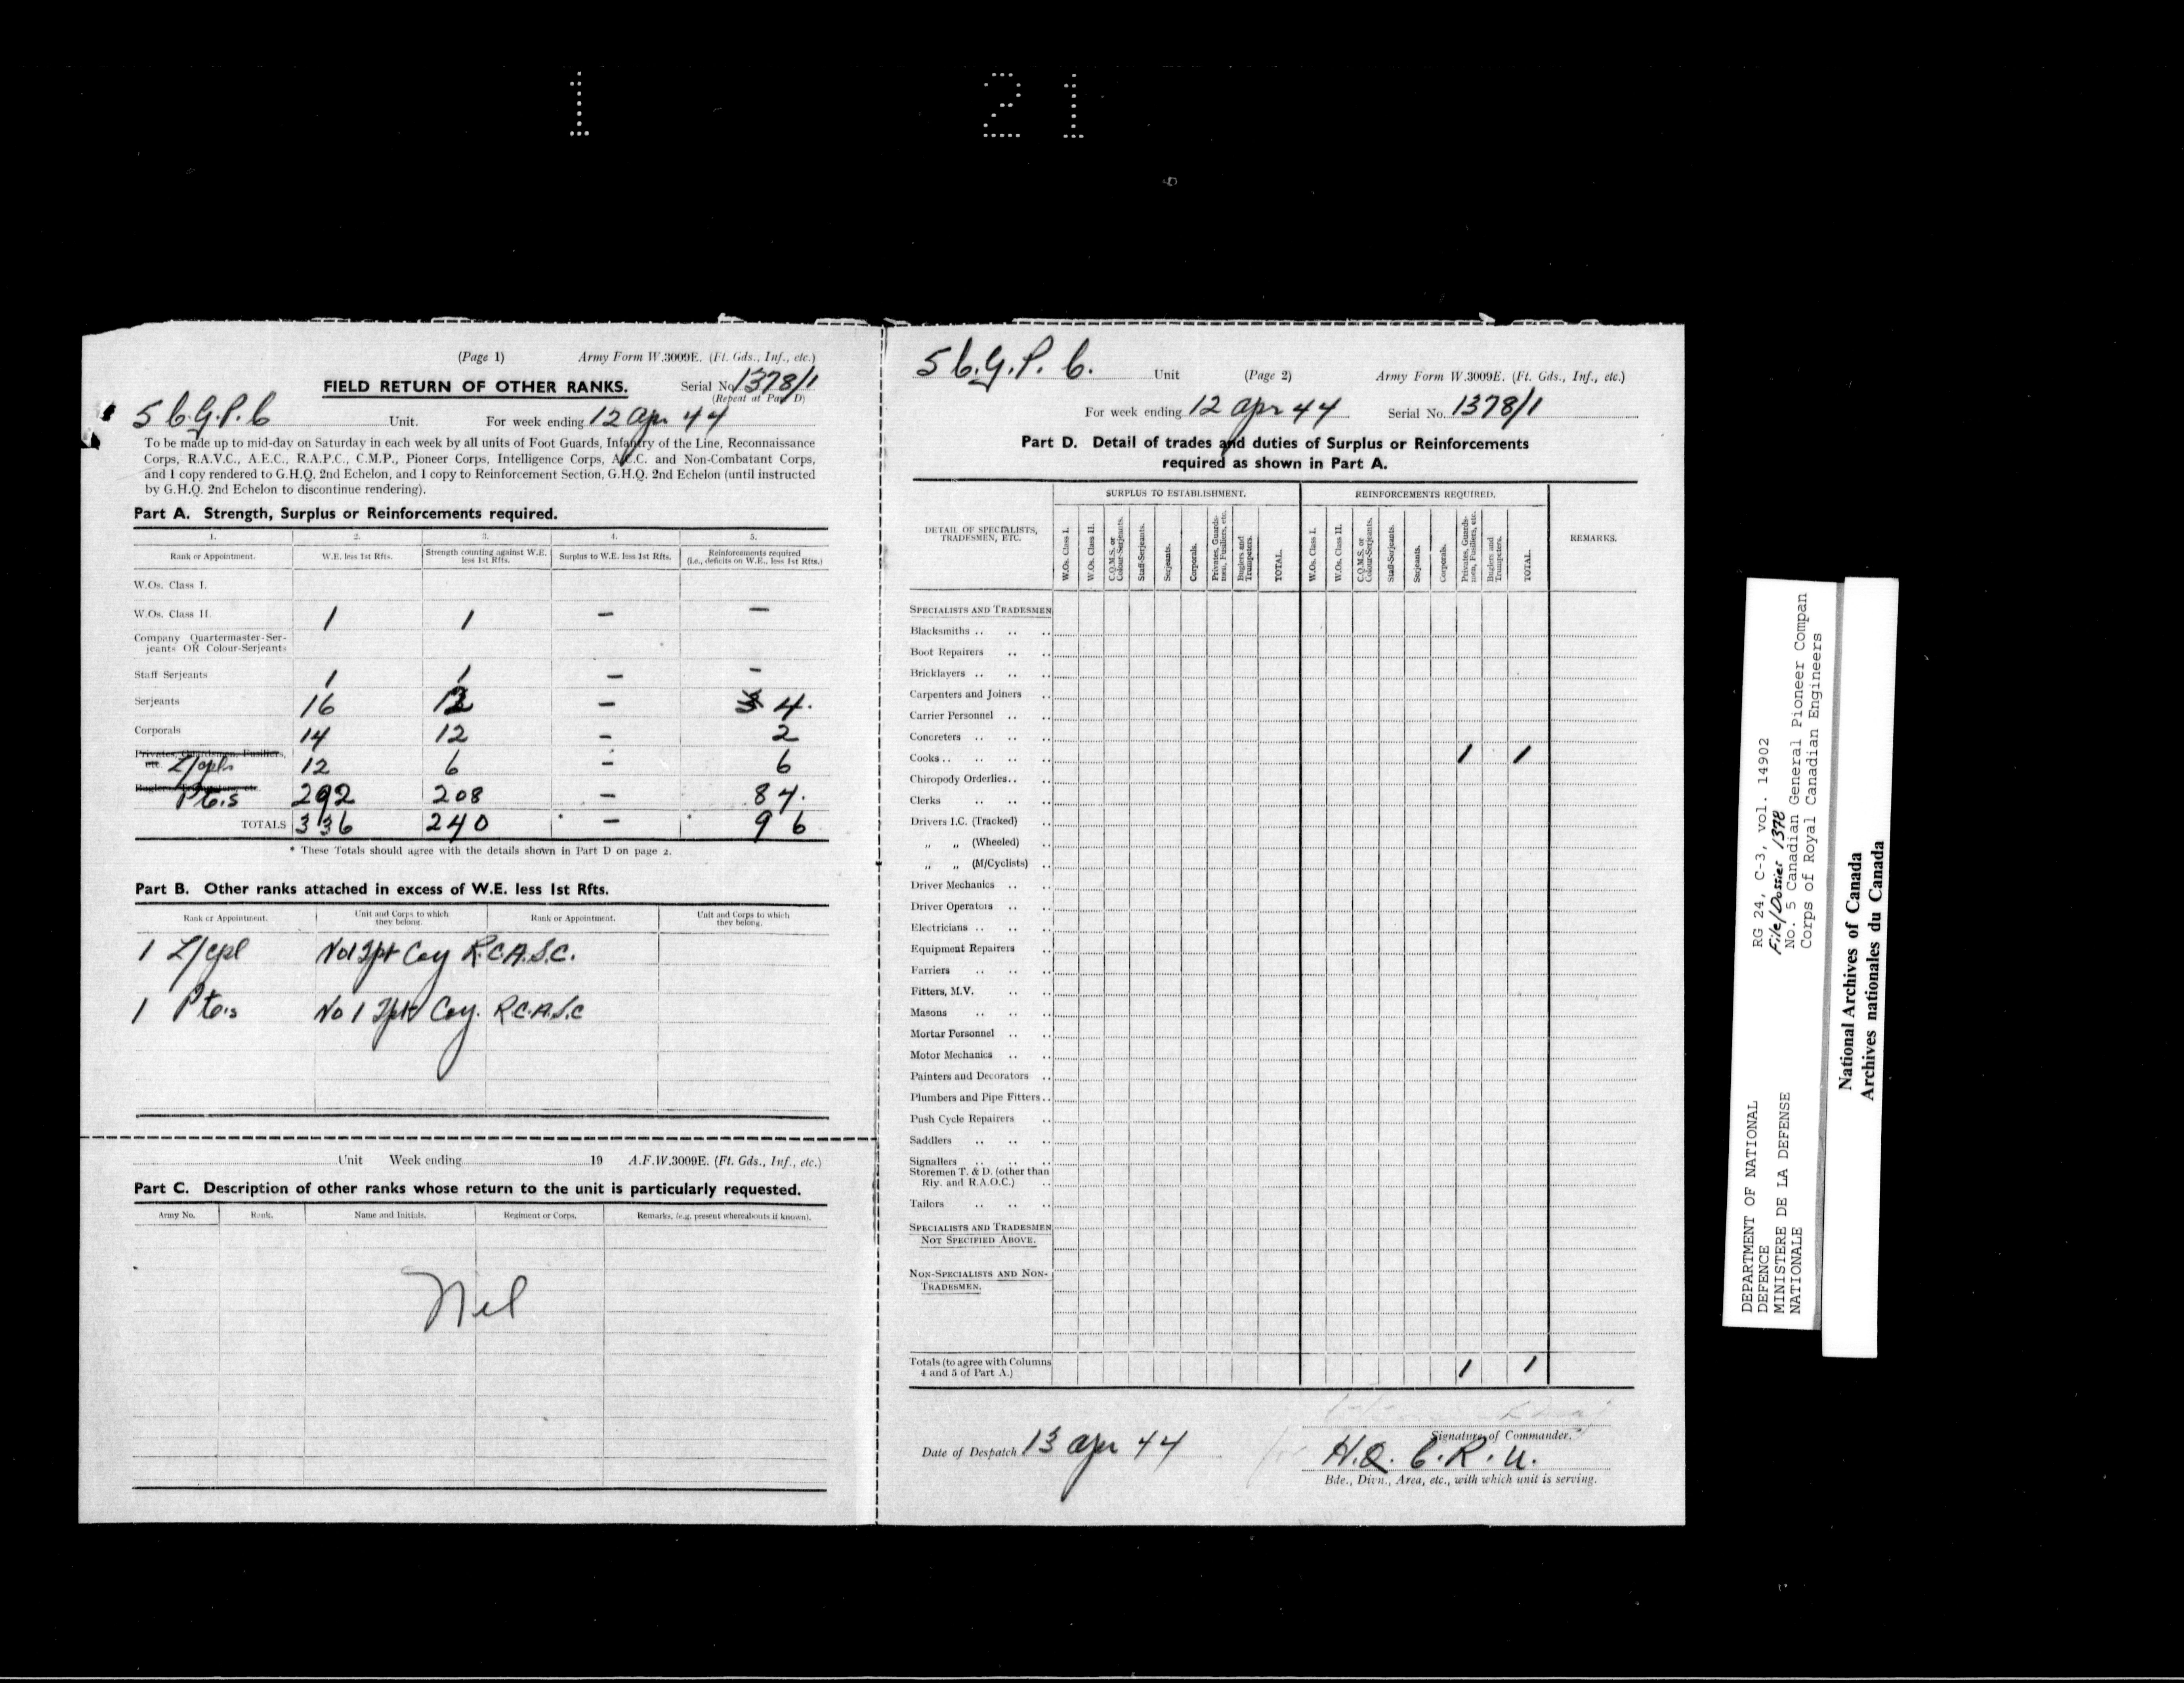 1 21
(Page 1) Army Form W.3009E. (Ft. Gds., Inf., etc.)
FIELD RETURN OF OTHER RANKS. Serial No. 1378/1
(Repeat at Part D)
5 C.G.P.C Unit. For week ending 12 Apr 44
To be made up to mid-day on Saturday in each week by all units of Foot Guards, Infantry of the Line, Reconnaissance
Corps, R.A.V.C., A.E.C., R.A.P.C., C.M.P., Pioneer Corps, Intelligence Corps, A.C.C. and Non-Combatant Corps,
and 1 copy rendered to G.H.Q. 2nd Echelon, and 1 copy to Reinforcement Section, G.H.Q. 2nd Echelon (until instructed
by G.H.Q. 2nd Echelon to discontinue rendering).
Part A. Strength, Surplus or Reinforcements required.
1. 2. 3. 4. 5.
Rank or Appointment. W.E. less 1st Rfts. Strength counting against W.E. less 1st Rfts. Surplus to W.E. less 1st Rfts. Reinforcements required (i.e., deficits on W.E., less 1st Rfts.)
W.Os. Class I.
W.Os. Class II. 1 1 — —
Company Quartermaster-Ser-
jeants OR Colour-Serjeants
Staff Serjeants 1 1 — —
Serjeants 16 12 — 4.
Corporals 14 12 — 2
Privates, Guardsmen, Fusiliers,
etc. L/cpls 12 6 — 6
Pte.s 292 208 — 84.
TOTALS 336 240 * — * 96
* These Totals should agree with the details shown in Part D on page 2.
Part B. Other ranks attached in excess of W.E. less 1st Rfts.
Rank or Appointment. Unit and Corps to which they belong. Rank or Appointment. Unit and Corps to which they belong.
1 L/cpl No 1 Tpt Coy R.C.A.S.C.
1 Pte.s No 1 Tpt Coy. R.C.A.S.C
Unit Week ending 19 A.F.W.3009E. (Ft. Gds., Inf., etc.)
Part C. Description of other ranks whose return to the unit is particularly requested.
Army No. Rank. Name and Initials. Regiment or Corps. Remarks, (e.g. present whereabouts if known).
Nil
5 C.G.P. C. Unit (Page 2) Army Form W.3009E. (Ft. Gds., Inf., etc.)
For week ending 12 Apr 44 Serial No. 1378/1
Part D. Detail of trades and duties of Surplus or Reinforcements
required as shown in Part A.
DETAIL OF SPECIALISTS, TRADESMEN, ETC. SURPLUS TO ESTABLISHMENT. REINFORCEMENTS REQUIRED. REMARKS.
W.Os. Class I. W.Os. Class II. C.Q.M.S. or Colour-Serjeants. Staff-Serjeants. Serjeants. Corporals. Privates, Guardsmen, Fusiliers, etc. Buglers and Trumpeters. TOTAL. W.Os. Class I. W.Os. Class II. C.Q.M.S. or Colour-Serjeants. Staff-Serjeants. Serjeants. Corporals. Privates, Guardsmen, Fusiliers, etc. Buglers and Trumpeters. TOTAL.
SPECIALISTS AND TRADESMEN
Blacksmiths .. .. ..
Boot Repairers .. ..
Bricklayers .. .. ..
Carpenters and Joiners ..
Carrier Personnel .. ..
Concreters .. .. ..
Cooks .. .. .. .. 1 1
Chiropody Orderlies .. ..
Clerks .. .. ..
Drivers I.C. (Tracked) ..
„ „ (Wheeled) ..
„ „ (M/Cyclists) ..
Driver Mechanics .. ..
Driver Operators .. ..
Electricians .. .. ..
Equipment Repairers ..
Farriers .. .. ..
Fitters, M.V. .. ..
Masons .. .. ..
Mortar Personnel .. ..
Motor Mechanics .. ..
Painters and Decorators ..
Plumbers and Pipe Fitters ..
Push Cycle Repairers ..
Saddlers .. .. ..
Signallers .. .. ..
Storemen T. & D. (other than
Rly. and R.A.O.C.) ..
Tailors .. .. ..
SPECIALISTS AND TRADESMEN
NOT SPECIFIED ABOVE.
NON-SPECIALISTS AND NON-
TRADESMEN.
Totals (to agree with Columns
4 and 5 of Part A.) 1 1
Signature of Commander.
Date of Despatch 13 Apr 44 H.Q. C.R.U.
Bde., Divn., Area, etc., with which unit is serving.
DEPARTMENT OF NATIONAL
DEFENCE
MINISTERE DE LA DEFENSE
NATIONALE
RG 24, C-3, vol. 14902
File/Dossier 1378
No. 5 Canadian General Pioneer Compan
Corps of Royal Canadian Engineers
National Archives of Canada
Archives nationales du Canada